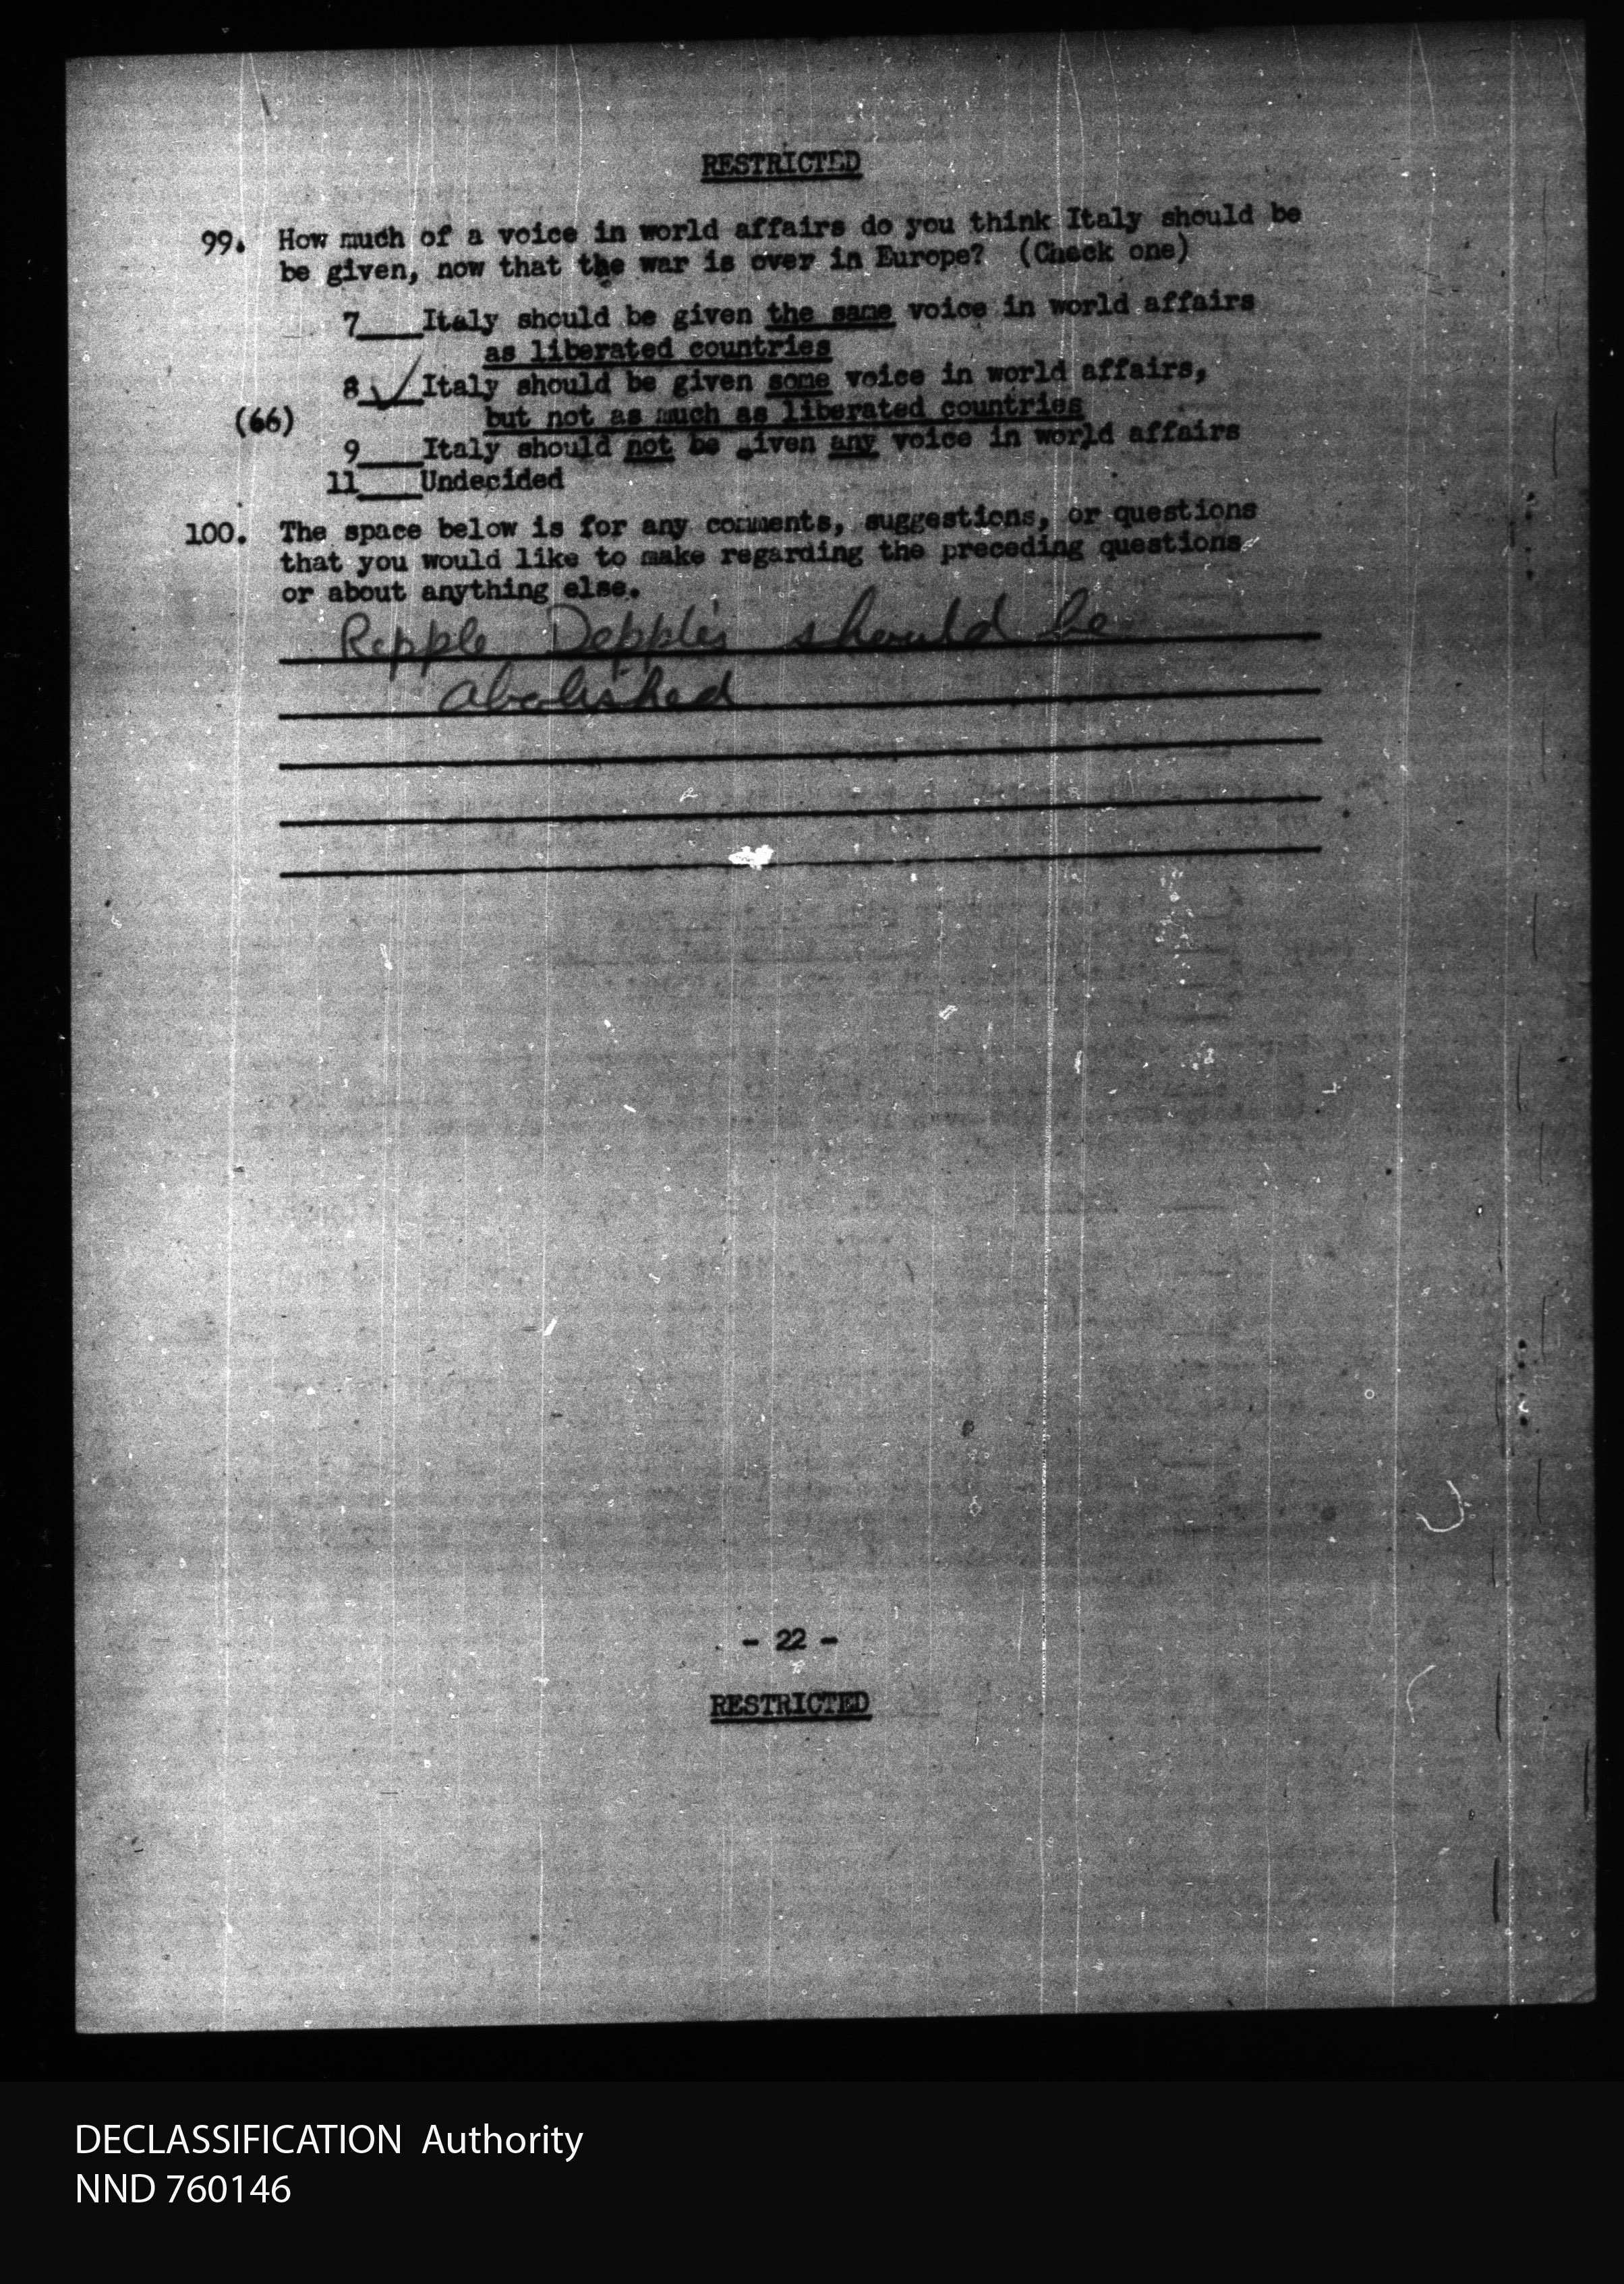 RESTRICTED
99. How much of a voice in world affairs do you think Italy should be
be given, now that the war is over in Europe? (Check one)
7____Italy should be given the same voice in world affairs
as liberated countries
8_✓_Italy should be given some voice in world affairs,
(66) but not as much as liberated countries
9____Italy should not be given any voice in world affairs
11____Undecided
100. The space below is for any comments, suggestions, or questions
that you would like to make regarding the preceding questions
or about anything else.
Repple Depple's should be
abolished
- 22 -
RESTRICTED
DECLASSIFICATION Authority
NND 760146